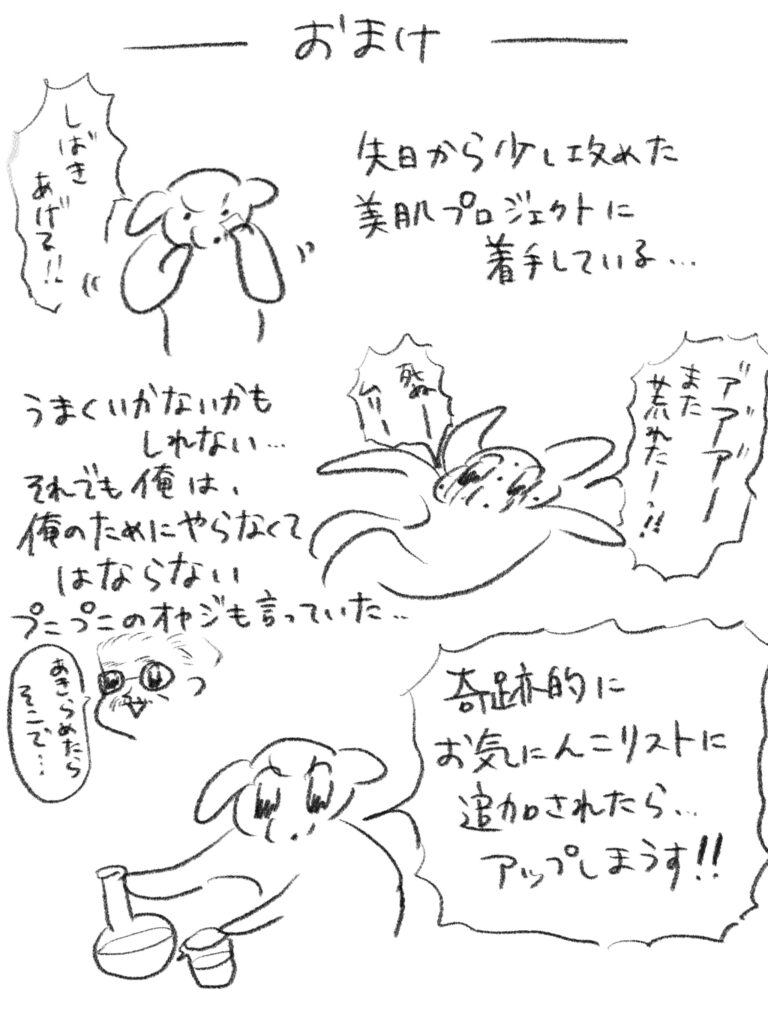 おまけ
先日から少し攻めた
美肌プロジェクトに
着手している…
しばき
あげる!!
ア゙ア゙ア゙ー
また
荒れたーっ!!
死ぬー
うまくいかないかも
しれない…
それでも俺は、
俺のためにやらなくて
はならない
プニプニのオヤジも言っていた…
あきらめたら
そこで…
奇跡的に
お気に入りリストに
追加されたら…
アップしまうす!!